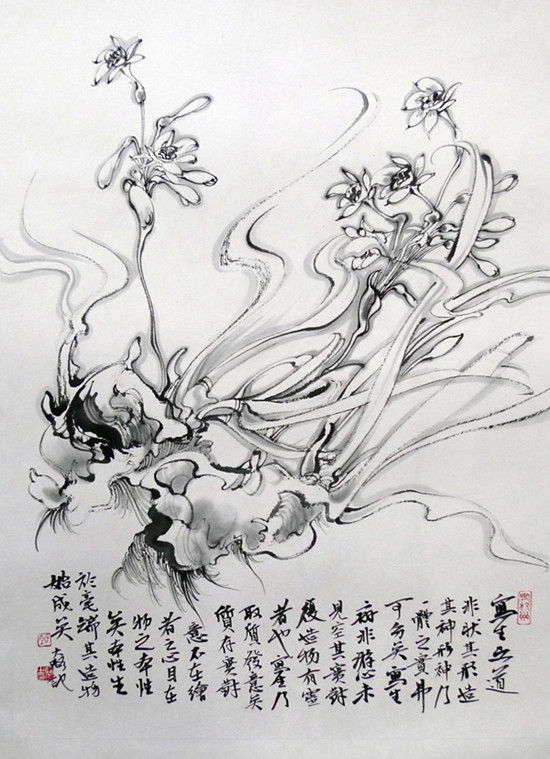 寫生之道
非狀其形造
其神形神乃
一體之實弗
可分矣寫生
非游心未
見空其實對
覆造物有空
者也寫生乃
取質發意矣
質存實對
意不在繪
者之心目在
物之本性
矣本性生
於毫端其造物
始成矣